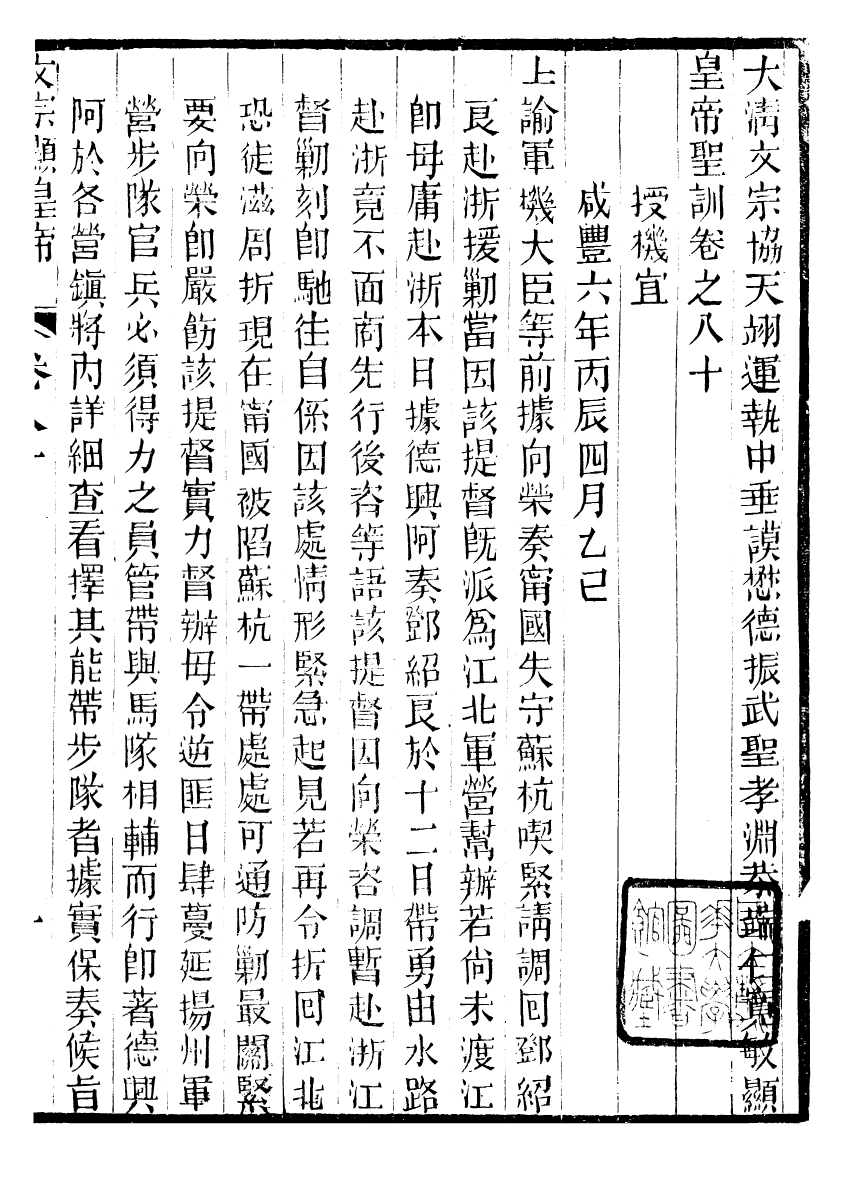 大淸文宗協天翊運執中垂謨懋德振武聖孝淵恭端仁寬敏顯
皇帝聖訓卷之八十
授機宜
咸豐六年丙辰四月乙巳
上諭軍機大臣等前據向榮奏甯國失守蘇杭喫緊請調回鄧紹
良赴浙援勦當因該提督旣派爲江北軍營幫辦若尙未渡江
卽毋庸赴浙本日據德興阿奏鄧紹良於十二日帶勇由水路
赴浙竟不面商先行後咨等語該提督因向榮咨調暫赴浙江
督勦刻卽馳往自係因該處情形緊急起見若再令折回江北
恐徒滋周折現在甯國被陷蘇杭一帶處處可通防勦最關緊
要向榮卽嚴飭該提督實力督辦毋令逆匪日肆蔓延揚州軍
營步隊官兵必須得力之員管帶與馬隊相輔而行卽著德興
阿於各營鎭將內詳細查看擇其能帶步隊者據實保奏候旨
文宗顯皇帝
卷八十
一
大學
圖書
館藏